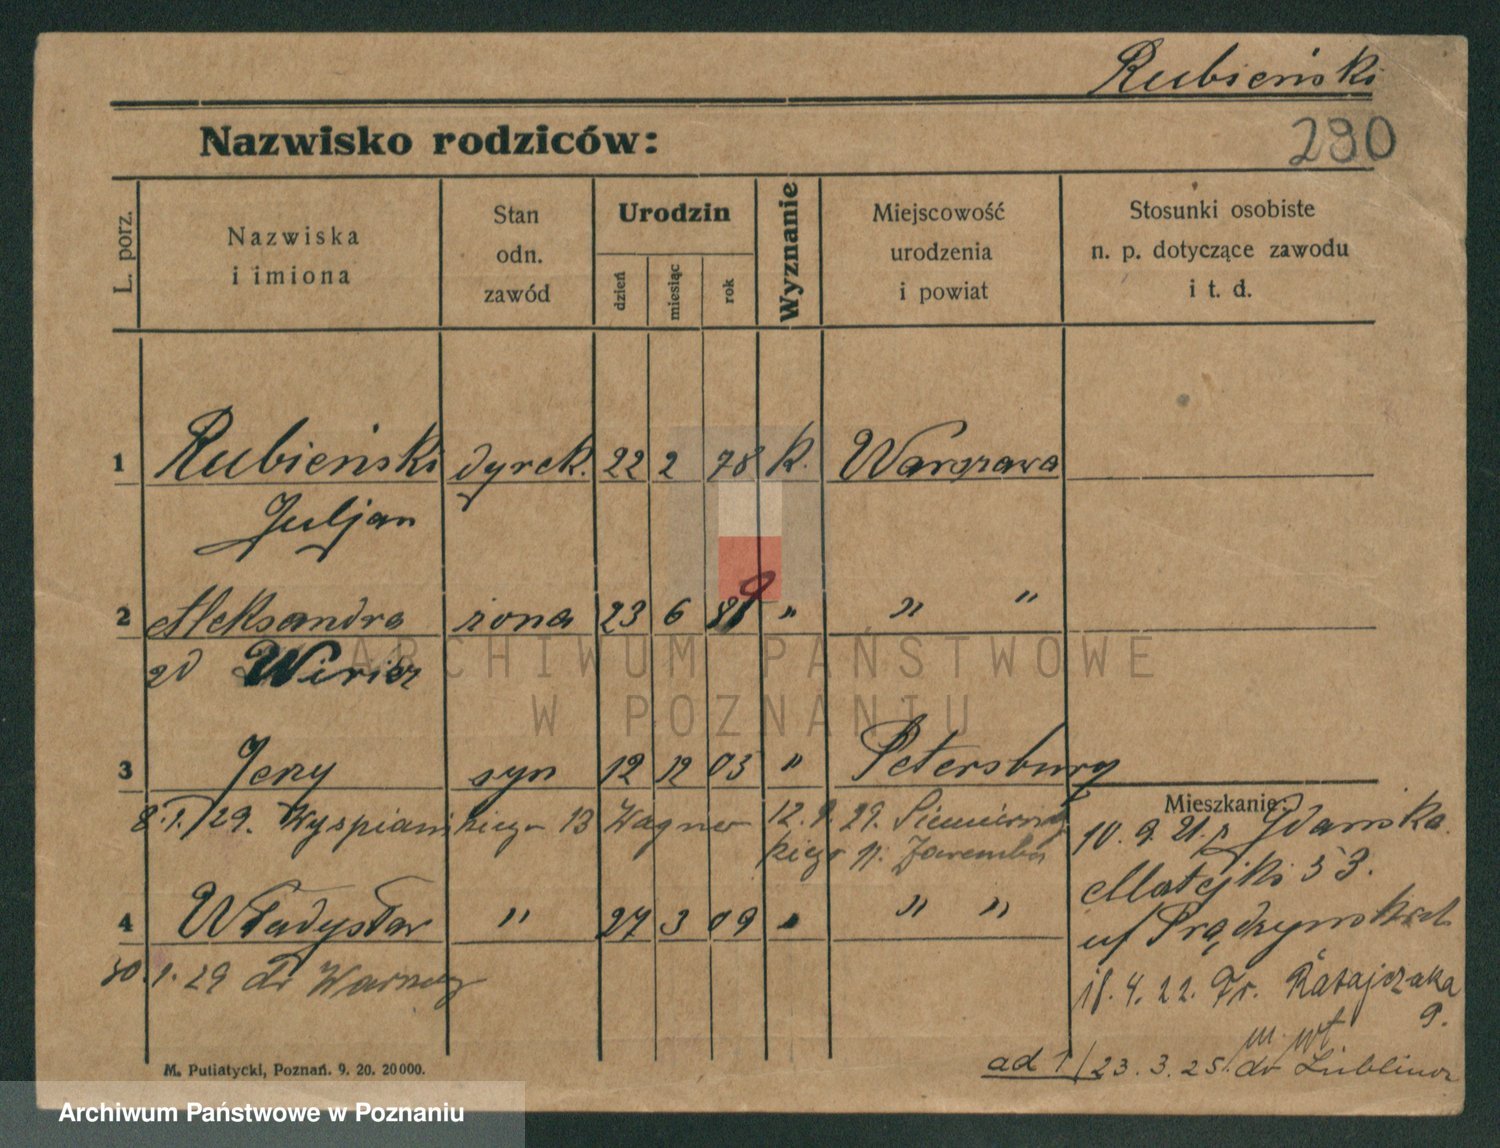 Rubieński
290
Nazwisko rodziców:
L. porz.
Nazwiska
i imiona
Stan
odn.
zawód
Urodzin
dzień
miesiąc
rok
Wyznanie
Miejscowość
urodzenia
i powiat
Stosunki osobiste
n. p. dotyczące zawodu
i t. d.
1 Rubieński dyrek. 22 2 78 K. Warszawa
Juljan
2 Aleksandra żona 23 6 89 " " "
zd
ARCHIWUM PAŃSTWOWE
W POZNANIU
3 Jerzy syn 12 12 05 " Petersburg
8.1./29. Wyspiańskiego 13 Wagner 12.9.29. Siemiradz
kiego 11. Zaremba
Mieszkanie:
10. 9. 21. z Gdańska.
Matejki 53.
4 Władysław " 27 3 09 " " "
u/ Prądzyńskich
30.1.29 do Warszawy
18. 4. 22. Fr. Ratajczaka
9.
m. wt.
ad 1/ 23. 3. 25. do Lublina
M. Putiatycki, Poznań. 9. 20. 20000.
Archiwum Państwowe w Poznaniu